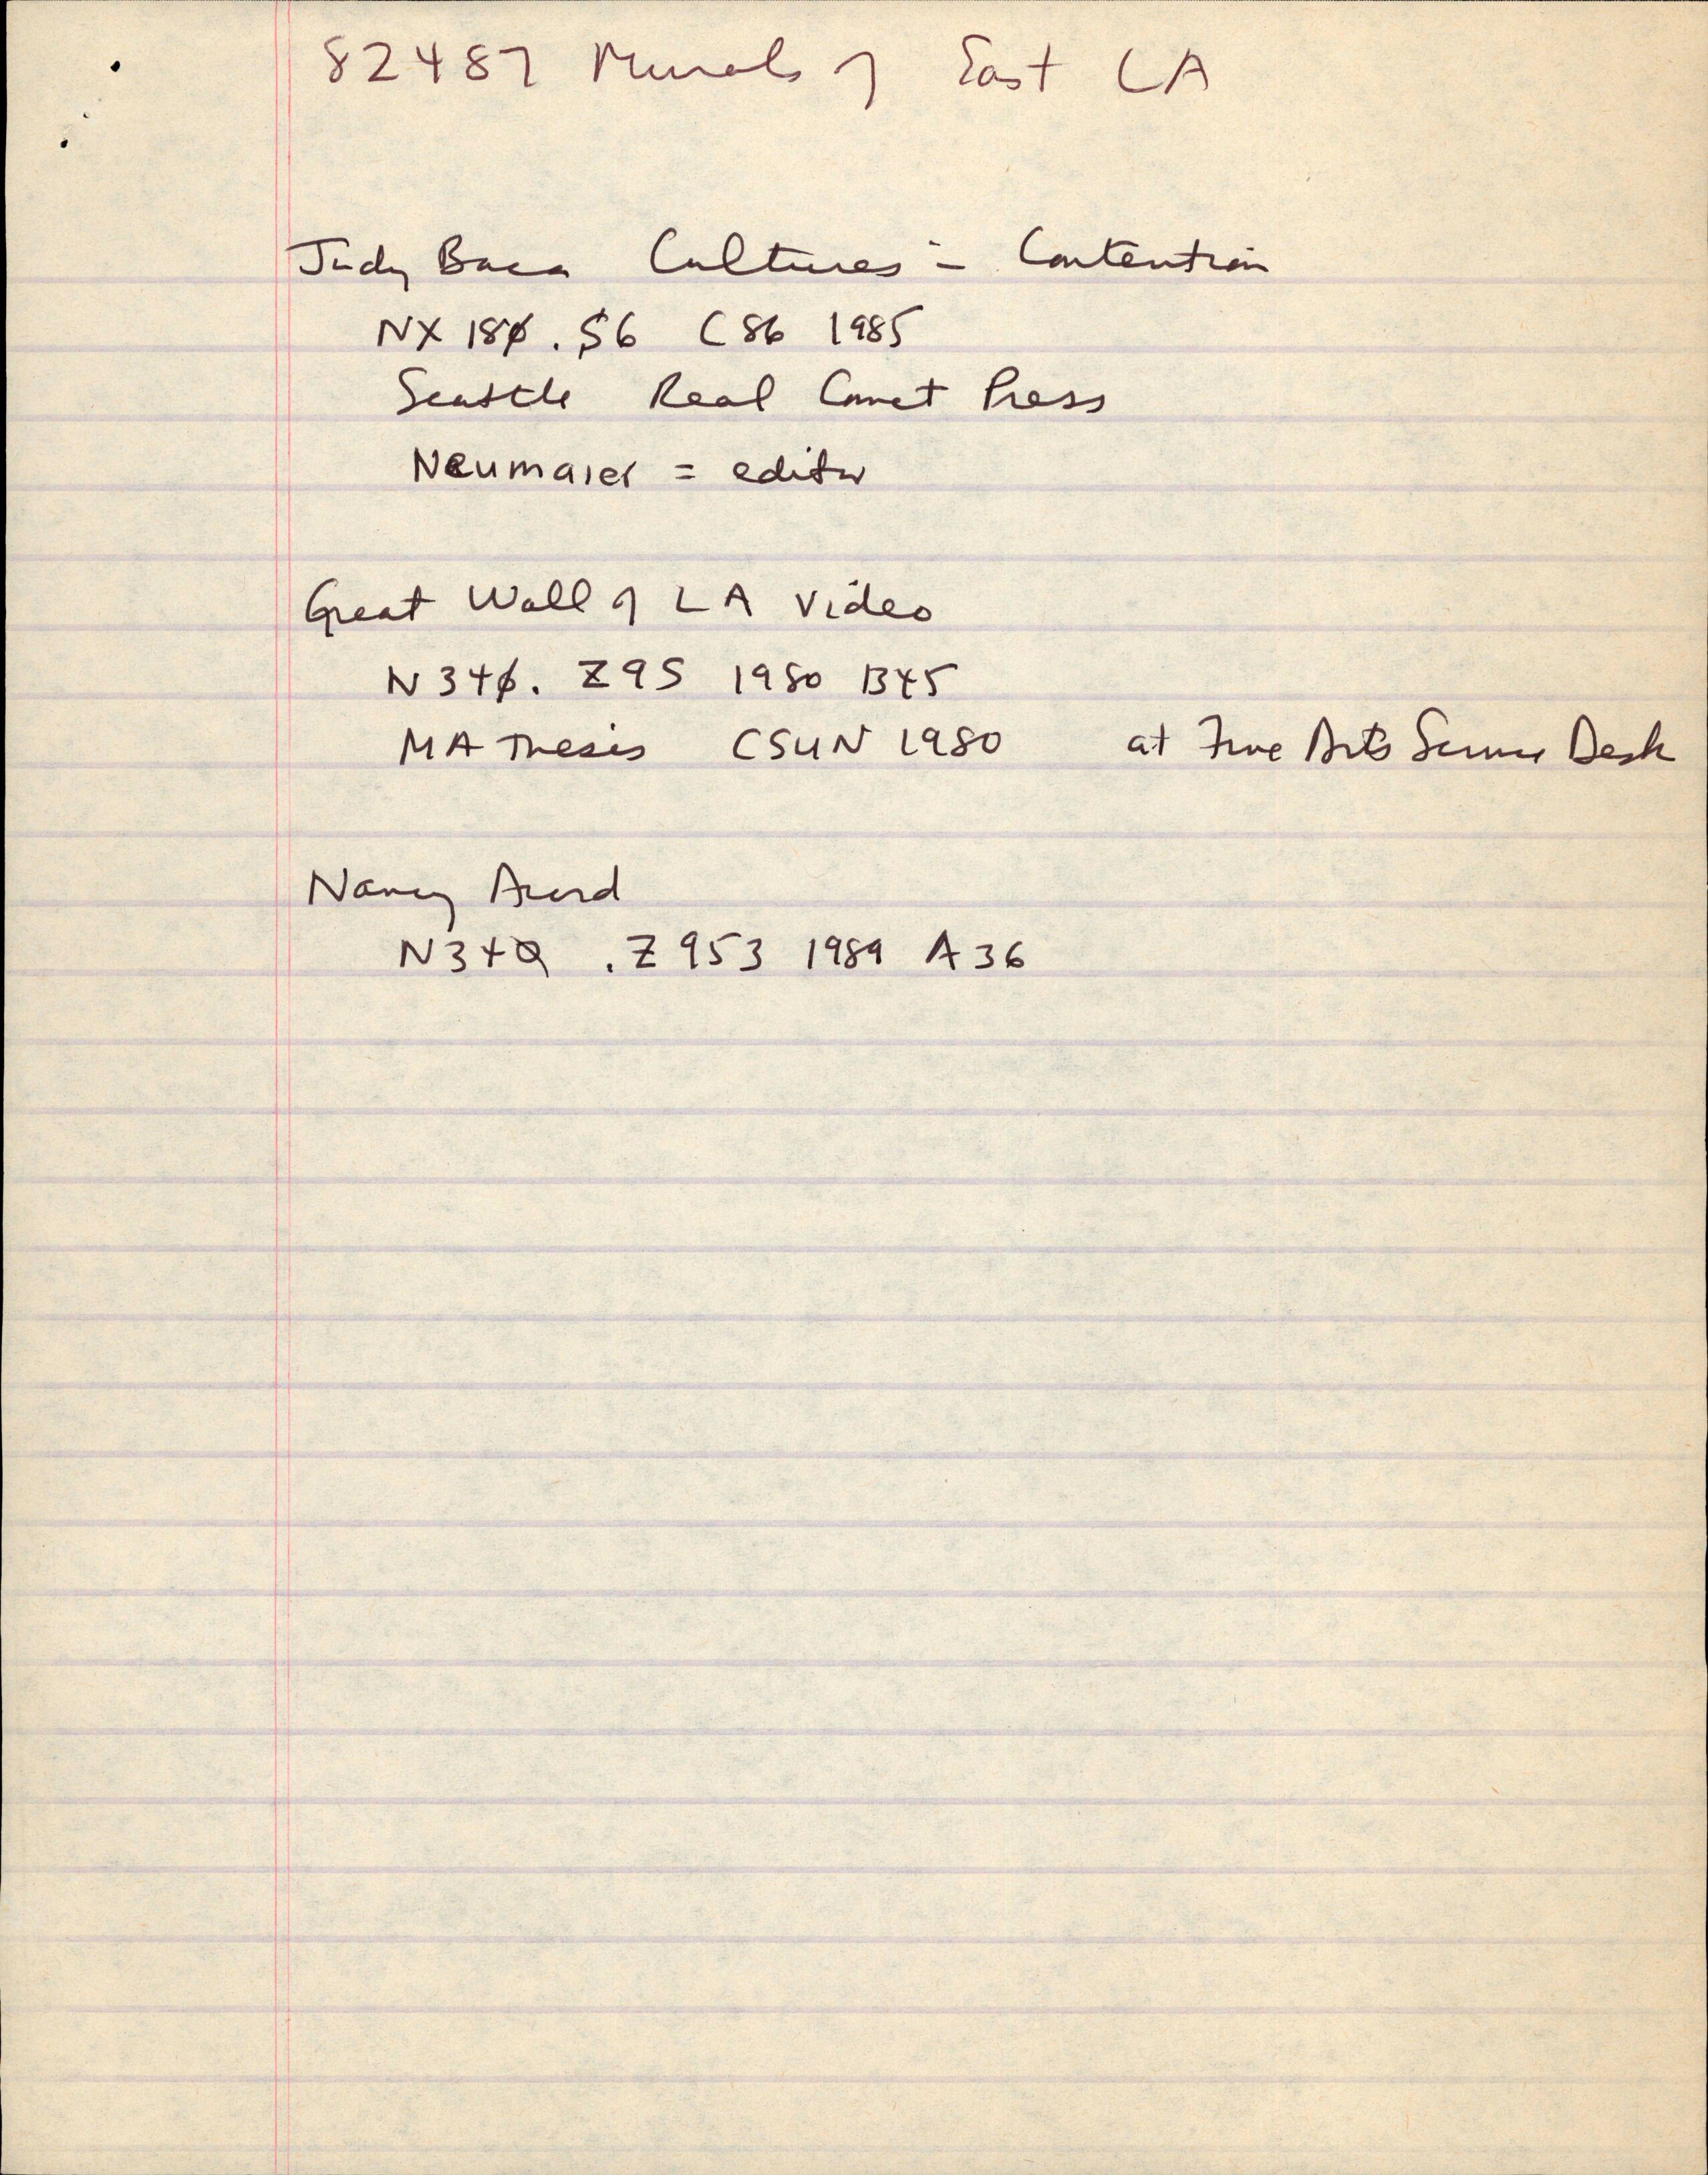 82487 Murals of East LA
Judy Baca Cultures in Contention
NX 180.S6 C86 1985
Seattle Real Comet Press
Neumaier = editor
Great Wall of LA Video
N340. Z95 1980 B45
MA Thesis CSUN 1980 at Fine Arts Service Desk
Nancy
N340 .Z953 1989 A36